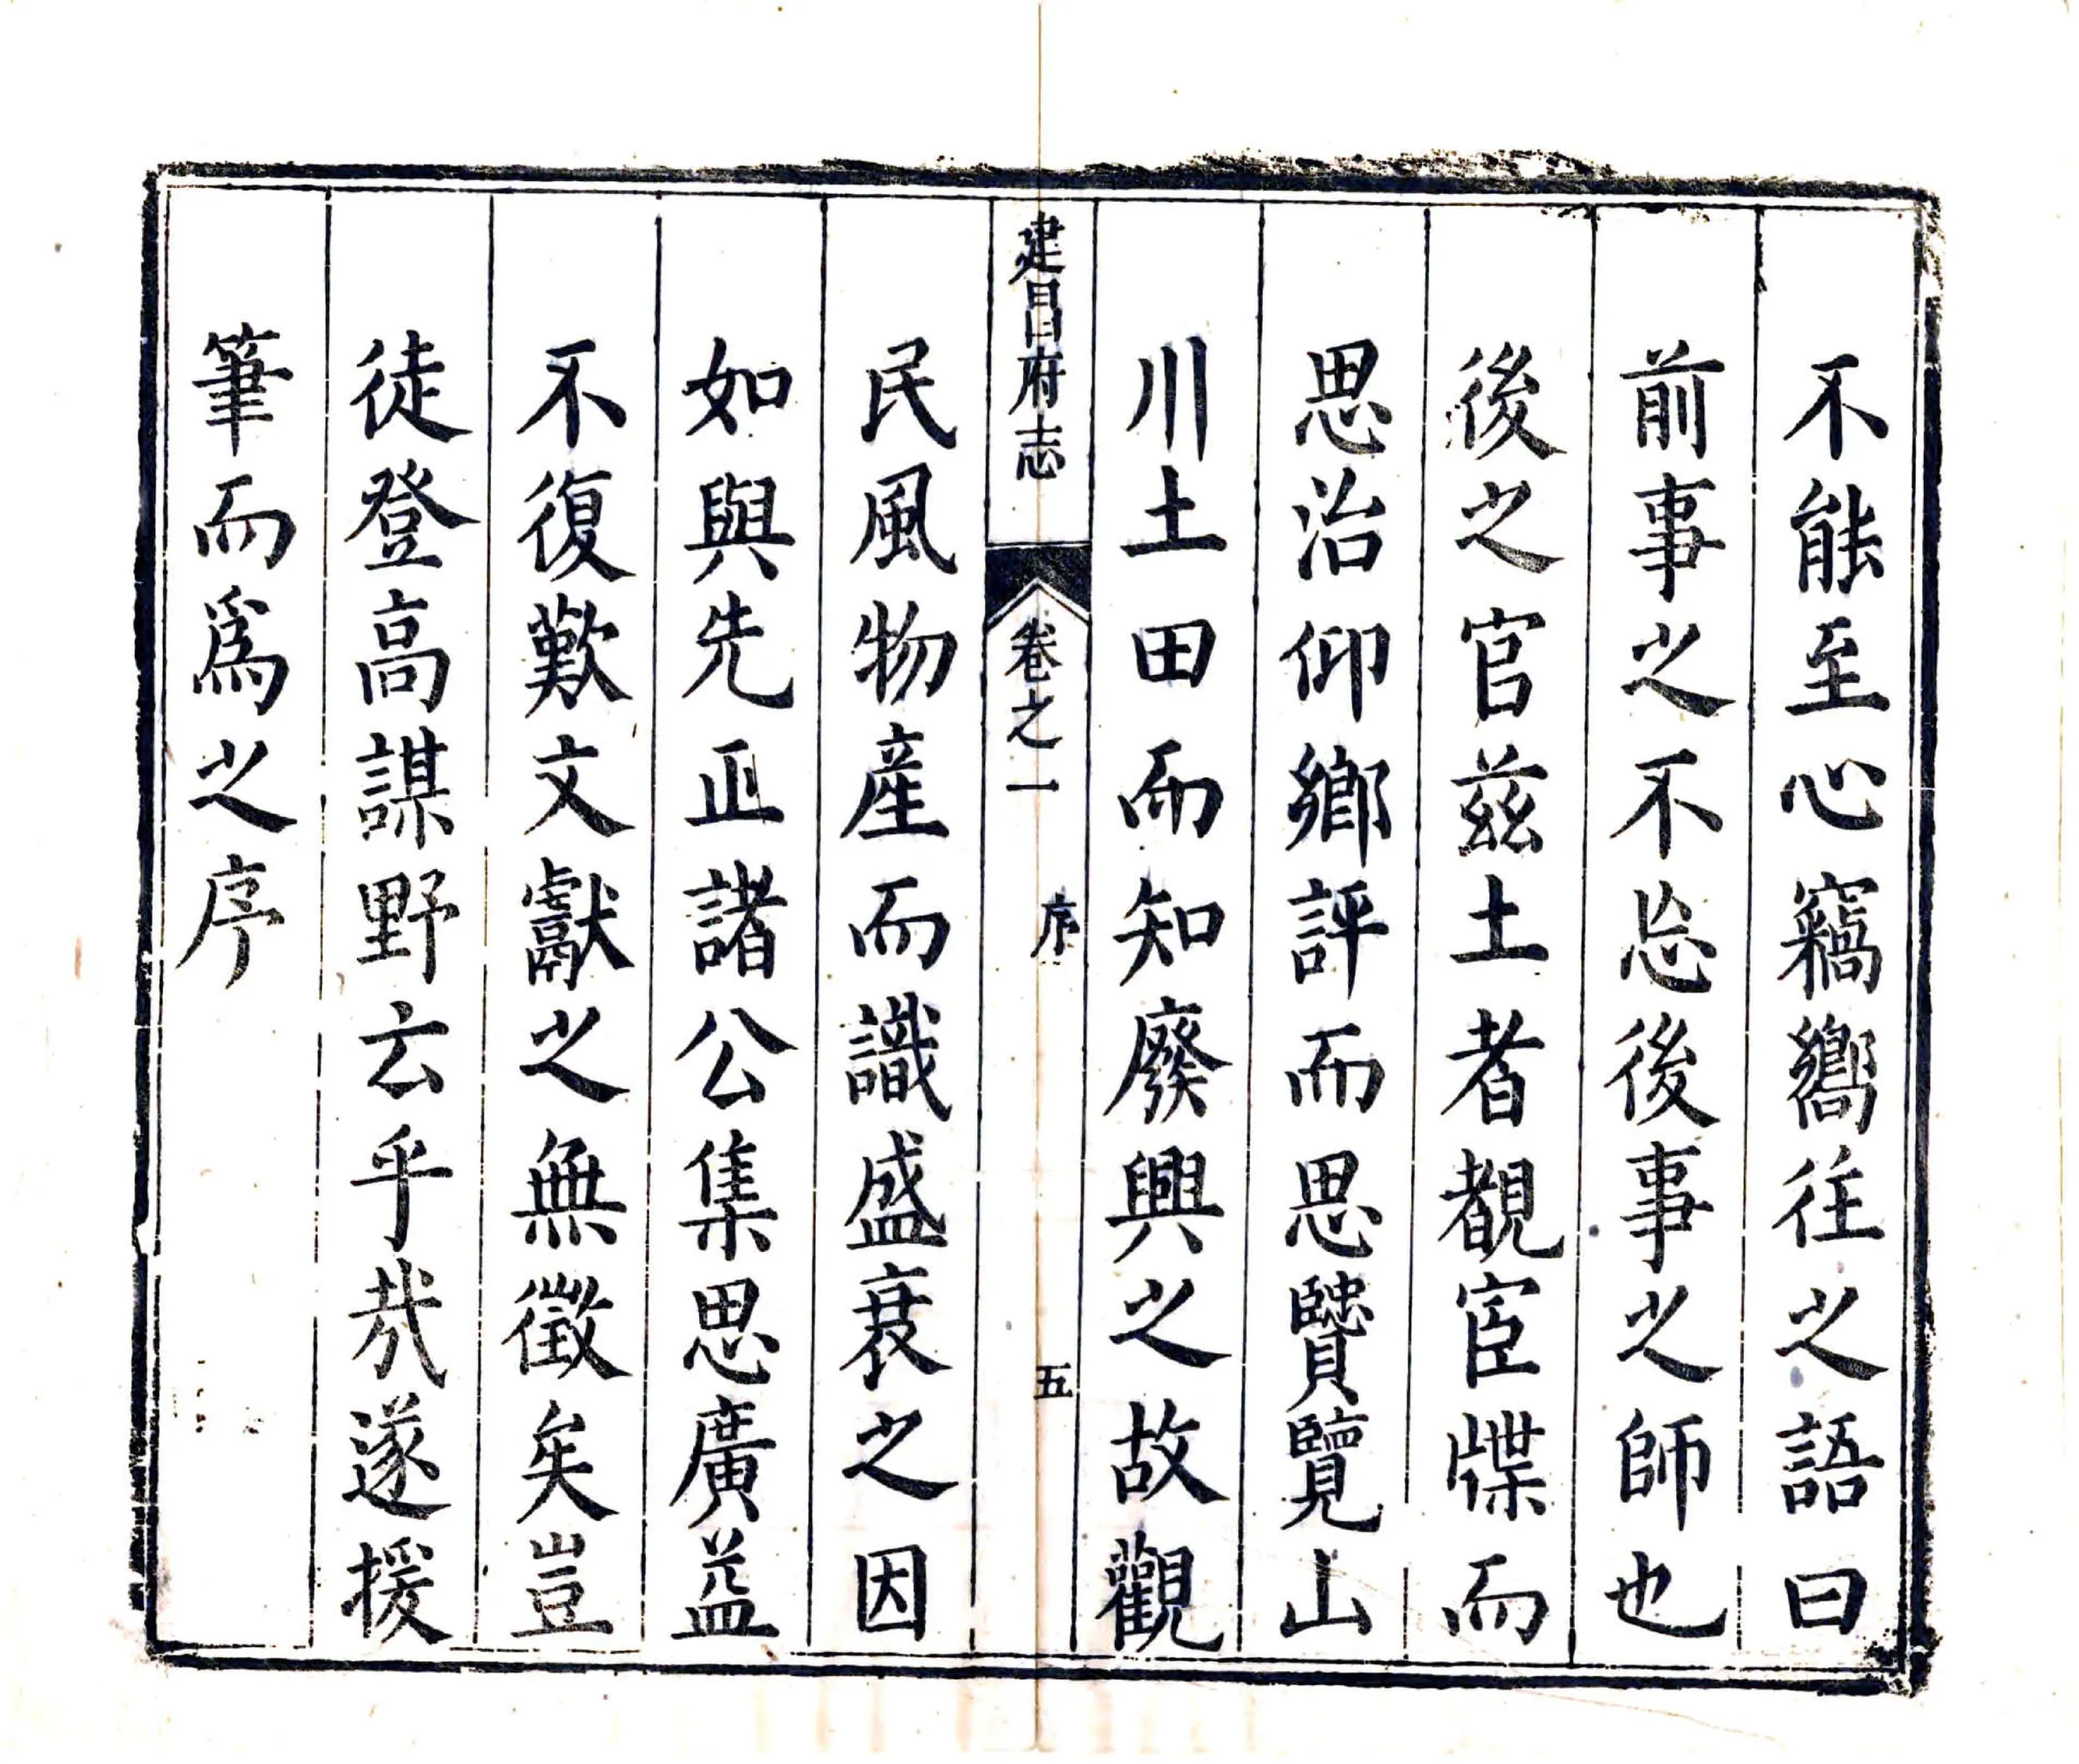 不能至心竊嚮往之語曰
前事之不忘後事之師也
後之官茲土者覩宦牒而
思治仰鄉評而思賢覽山
川土田而知廢興之故觀
建昌府志 卷之一 序 五
民風物產而識盛衰之因
如與先正諸公集思廣益
不復歎文獻之無徵矣豈
徒登高謀野云乎哉遂援
筆而爲之序